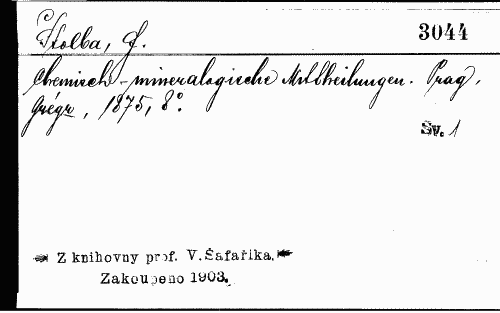 Štolba, F.
3044
Chemisch-mineralogische Mittheilungen. Prag,
Grégr, 1875, 8°.
Sv. 1
Z knihovny prof. V. Šafaříka.
Zakoupeno 1903.